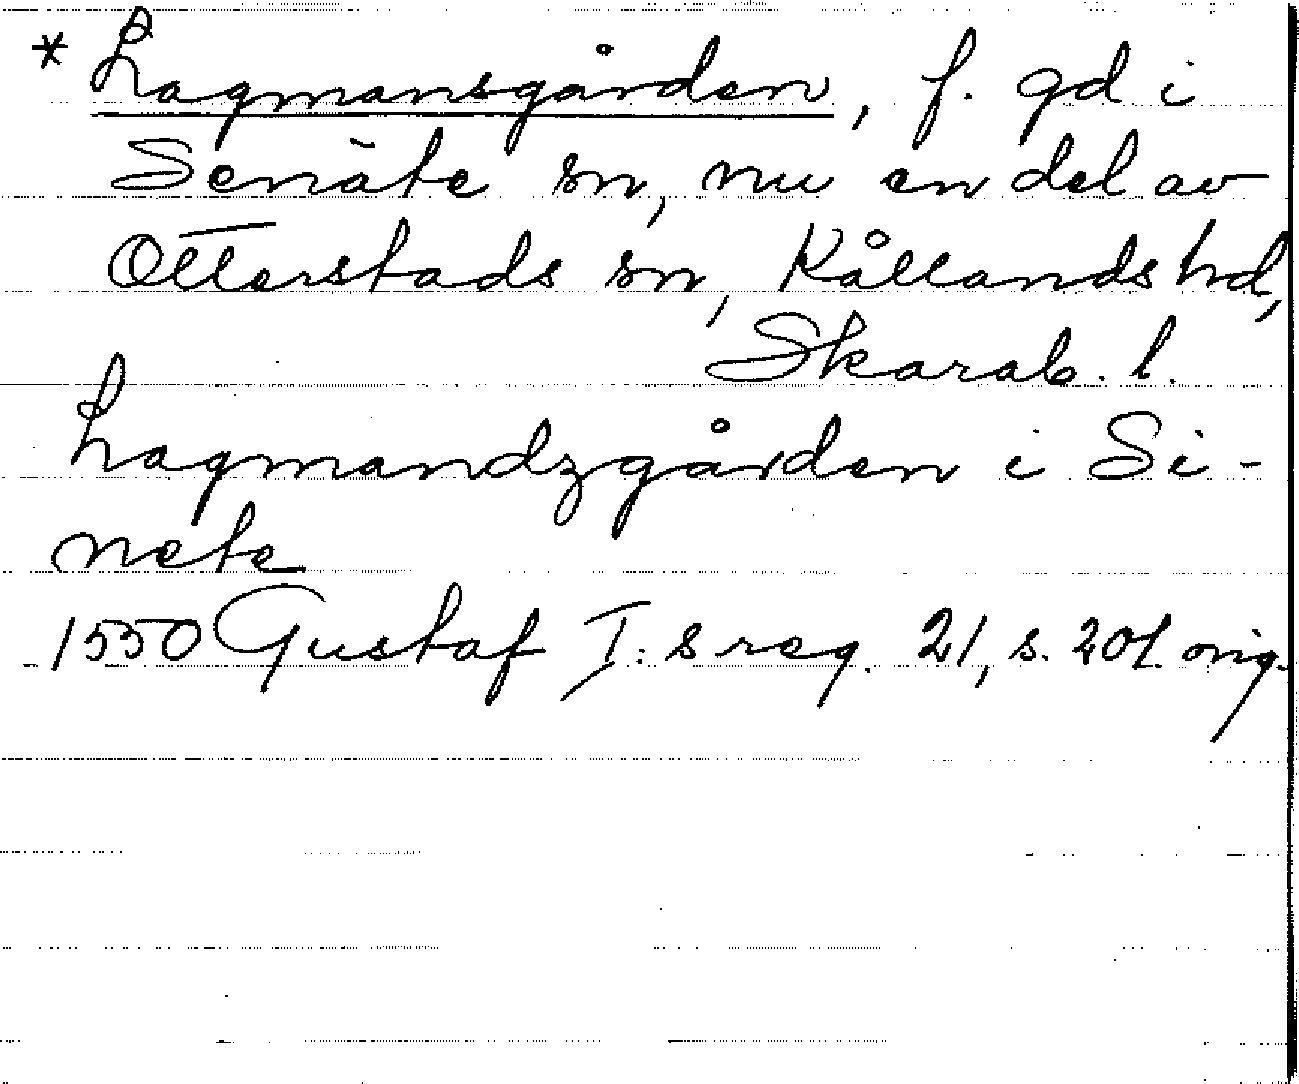 * Lagmansgården, f. gd i
Senäte sn, nu en del av
Otterstads sn, Kållands hd,
Skarab. l.
Lagmandzgården i Si-
nete
1550 Gustaf I:s reg. 21, s. 201. orig.